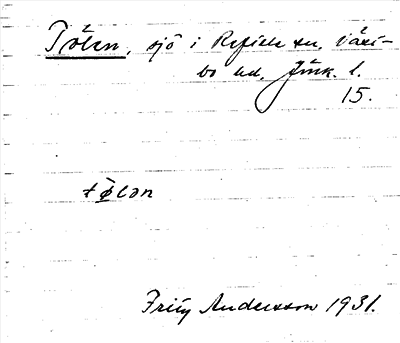 Tölen, sjö i Reftele sn, Väst-
bo hd, Jönk. l.
15.
tø̀lən
Fritz Andersson 1931.